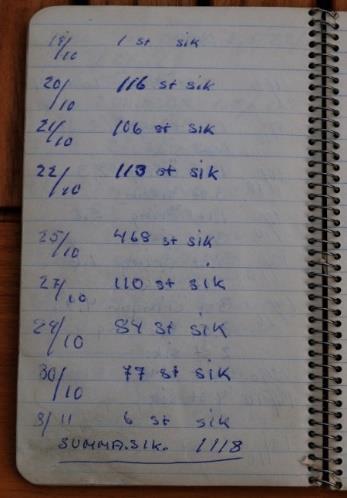 1 st sik
20/10 116 st sik
21/10 106 st sik
22/10 113 st sik
25/10 468 st sik
27/10 110 st sik
84 st sik
30/10 77 st sik
3/11 6 st sik
SUMMA.SIK. 1118